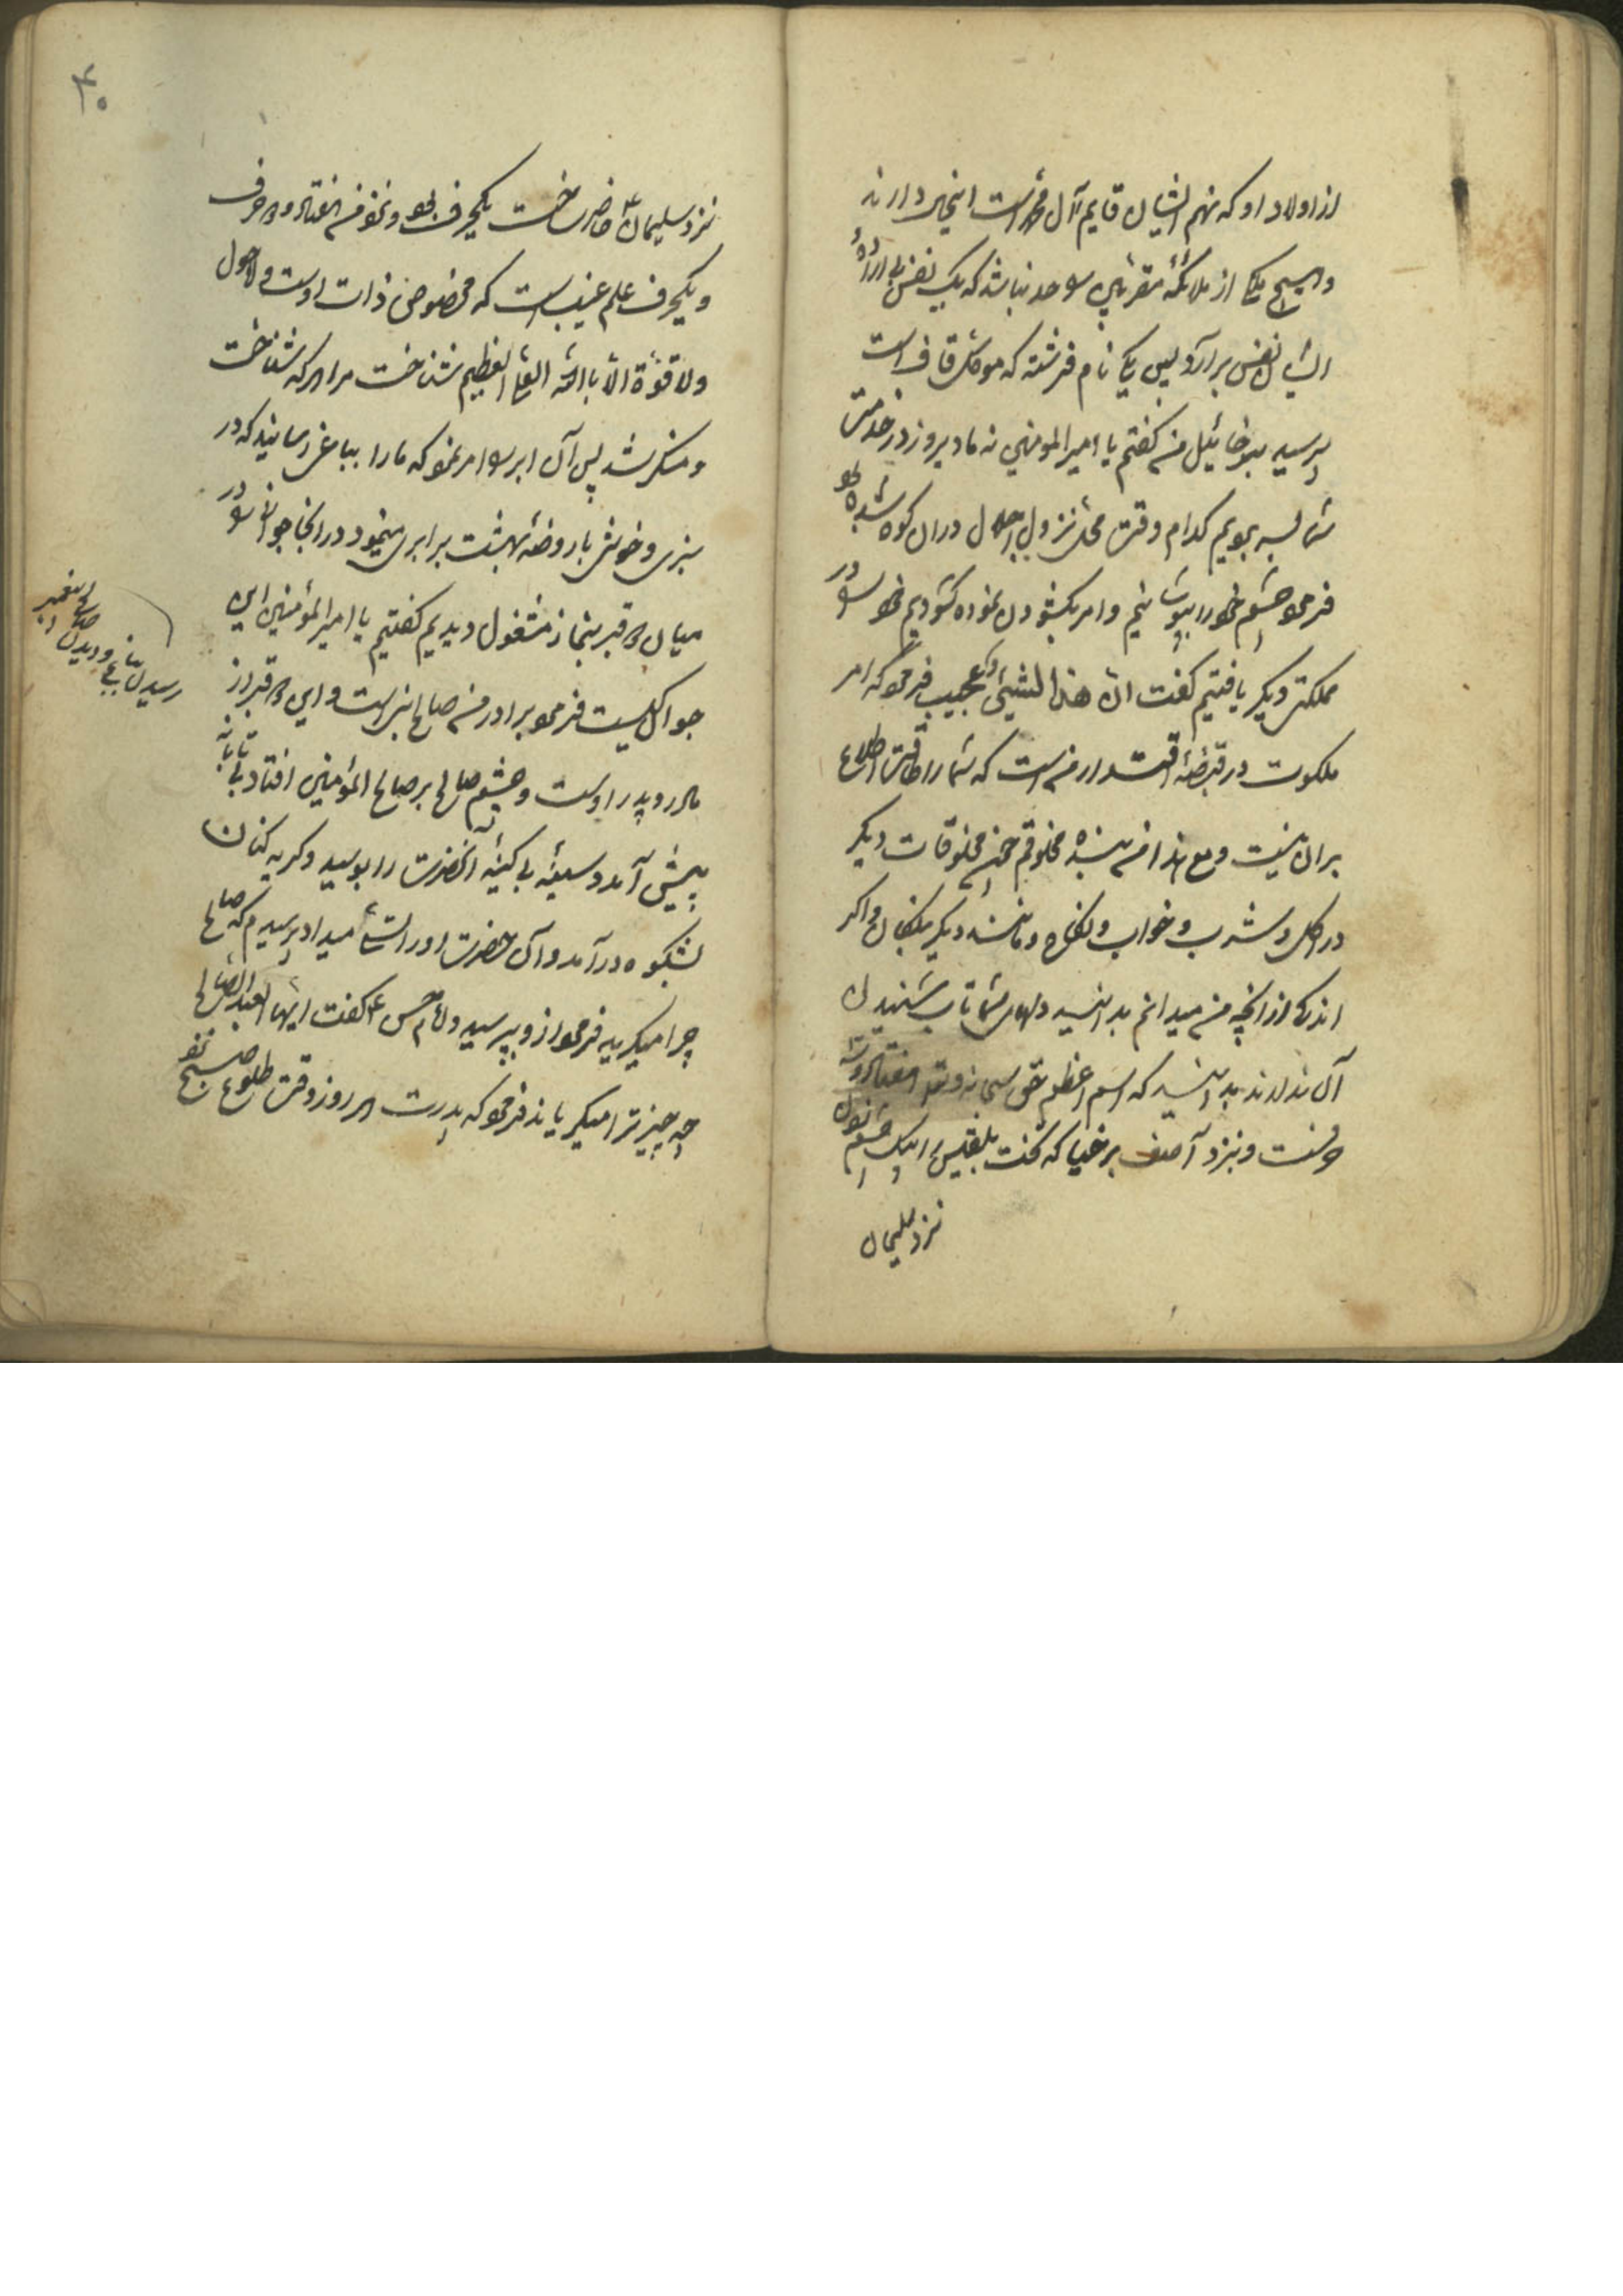 از اولاد او که نهم ایشان قایم آل محمد است اینحال دارند
و هیچ یک از ملائکهٔ مقربین را حد نباشد که یک نفس بی ارادهٔ
ایشان نفس برآرد پس یکی نام فرشته که موکل قاف است
پرسید برخائیل من گفتم یا امیرالمومنین نه ما دیروز در خدمت
شما بسر بریم کدام وقت محل نزول اجلال در ان کوه شده بود
فرمود چشم خود را بپوشانیم و امر بکشودن نموده کشودیم خود را در
مملکت دیگر یافتیم گفت ان هذا لشیئ عجیب فرمود که امر
ملکوت در قبضهٔ اقتدار من است که شما را طاقت اطلاع
بران نیست و مع هذا من بنده مخلوقم چون مخلوقات دیگر
در اکل و شرب و خواب و نکاح و مانند دیگر بندگان و اگر
اندکی از انچه من میدانم بدانید دلهای شما تاب شنیدن
آن ندارند بدانید که اسم اعظم حق سبحانه و تعالی هفتاد و سه
حرفست و نزد آصف برخیا که تخت بلقیس را بیک چشم زدن
نزد سلیمان
۴۰
نزد سلیمان حاضر ساخت یکحرف بود و نزد من هفتاد و دو حرف
و یکحرف علم غیب است که مخصوص ذات اوست و لا حول
ولا قوة الا بالله العلی العظیم شناخت مرا هر که شناخت
و منکر شد پس آن ابر را امر نمود که ما را بباغی رسانید که در
سبزی و خوشی با روضهٔ بهشت برابری مینمود در انجا جوانی را در
میان دو قبر بنماز مشغول دیدیم گفتیم یا امیرالمؤمنین این
جوان کیست فرمود برادر من صالح نبی است و این دو قبر از
مادر و پدر اوست و چشم صالح بر صالح المؤمنین افتاد بی تابانه
پیش آمد و سینهٔ بی کینهٔ آنحضرت را بوسید و گریه کنان
بشکوه درآمد و آن حضرت او را تسلی میداد پرسیدم که صالح
چرا میگرید فرمود از و بپرسید امام حسن ع گفت ایها العبد الصالح
چه چیز ترا میگریاند فرمود که پدرت هر روز وقت طلوع صبح
رسیدن بباغی و دیدن صالح پیغمبر